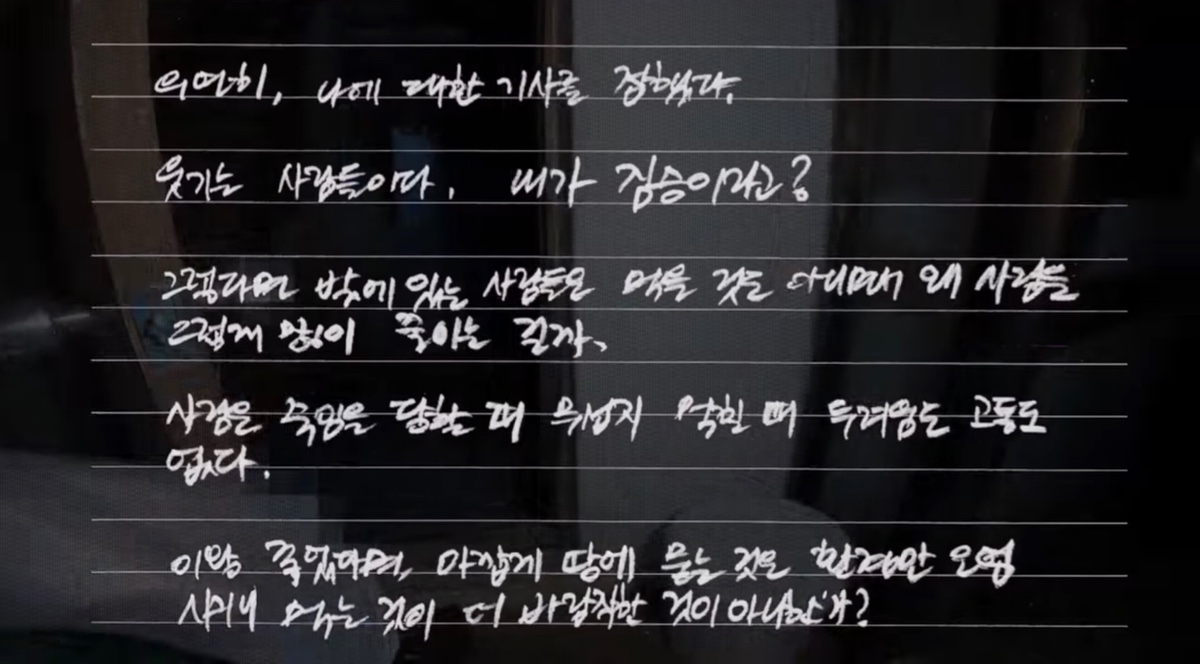 우연히, 나에 대한 기사를 접했다.
웃기는 사람들이다. 내가 짐승이라고?
그렇다면 밖에 있는 사람들은 먹을 것도 아닌데 왜 사람들
그렇게 많이 죽이는 걸까.
사람은 죽임을 당할 때 무섭지 먹힐 때 두려움도 고통도
없다.
이왕 죽었다면, 아깝게 땅에 묻는 것은 환경만 오염
시키니 먹는 것이 더 바람직한 것이 아니한가?